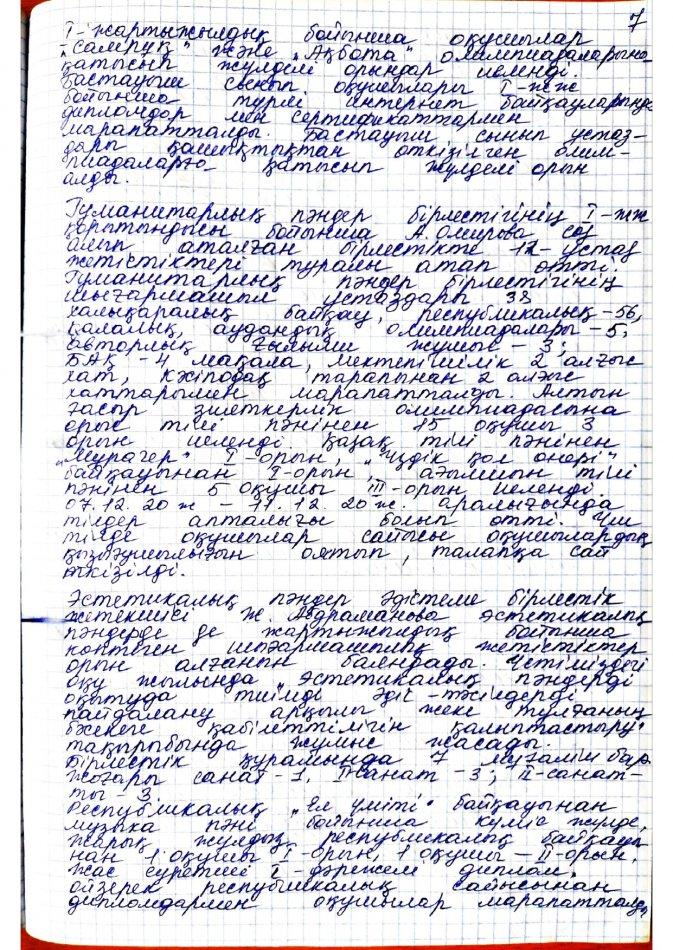 7
I-жартыжылдық бойынша оқушылар
„Самұрық" және „Ақбота" олимпиадаларына
қатысып жүлделі орындар иеленді.
Бастауыш сынып оқушылары I-жж
бойынша түрлі интернет байқауларында
дипломдар мен сертификаттармен
марапатталды. Бастауыш сынып ұстаз-
дары қашықтықтан өткізілген олим-
пиадаларға қатысып жүлделі орын
алды.
Гуманитарлық пәндер бірлестігінің I-жж
қорытындысы бойынша А. Омирова сөз
алып аталған бірлестікте 12 ұстаз
жетістіктері туралы атап өтті.
Гуманитарлық пәндер бірлестігінің
шығармашыл ұстаздары 38
халықаралық байқау, республикалық -56,
қалалық, аудандық олимпиадалары -5,
авторлық ғылыми жұмыс - 3;
БАҚ -4 мақала, мектепішілік 2 алғыс
хат, кәсіподақ тарапынан 2 алғыс
хаттарымен марапатталды. Алтын
ғасыр зияткерлік олимпиадасына
орыс тілі пәнінен 15 оқушы 3
орын иеленді қазақ тілі пәнінен
„Мұрагер" I-орын, „Үздік қол өнері"
байқауынан I-орын, ағылшын тілі
пәнінен 5 оқушы III-орын иеленді
07.12.20 ж - 11.12.20 ж. аралығында
тілдер апталығы болып өтті. Үш
тілде оқушылар сайысы оқушылардың
қызығушылығын оятып, талапқа сай
өткізілді.
Эстетикалық пәндер әдістеме бірлестік
жетекшісі Ж. Абдраманова эстетикалық
пәндерде де жартыжылдық бойынша
көптеген шығармашылық жетістіктер
орын алғанын баяндады. Үстіміздегі
оқу жылында „Эстетикалық пәндерді
оқытуда тиімді әдіс-тәсілдерді
пайдалану арқылы жеке тұлғаның
бәсекеге қабілеттілігін қалыптастыру"
тақырыбында жұмыс жасады.
Бірлестік құрамында 7 мұғалім бар.
Жоғары санат -1, I санат -3; II-санат-
ты -3
Республикалық „Ел үміті" байқауынан
музыка пәні бойынша күміс жүлде,
жарық жұлдыз республикалық байқауы
нан 1 оқушы I-орын, 1 оқушы - II-орын,
жас суретші I-дәрежелі диплом,
республикалық сайысынан
дипломдармен оқушылар марапатталды,